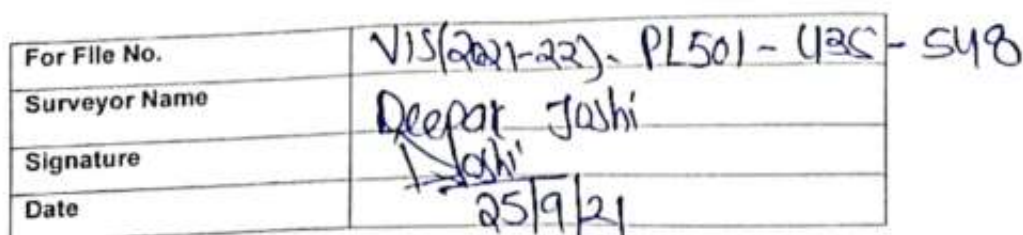 For File No. VIS(2021-22)-PL501-435-548
Surveyor Name Deepak Joshi
Signature Joshi
Date 25/9/21